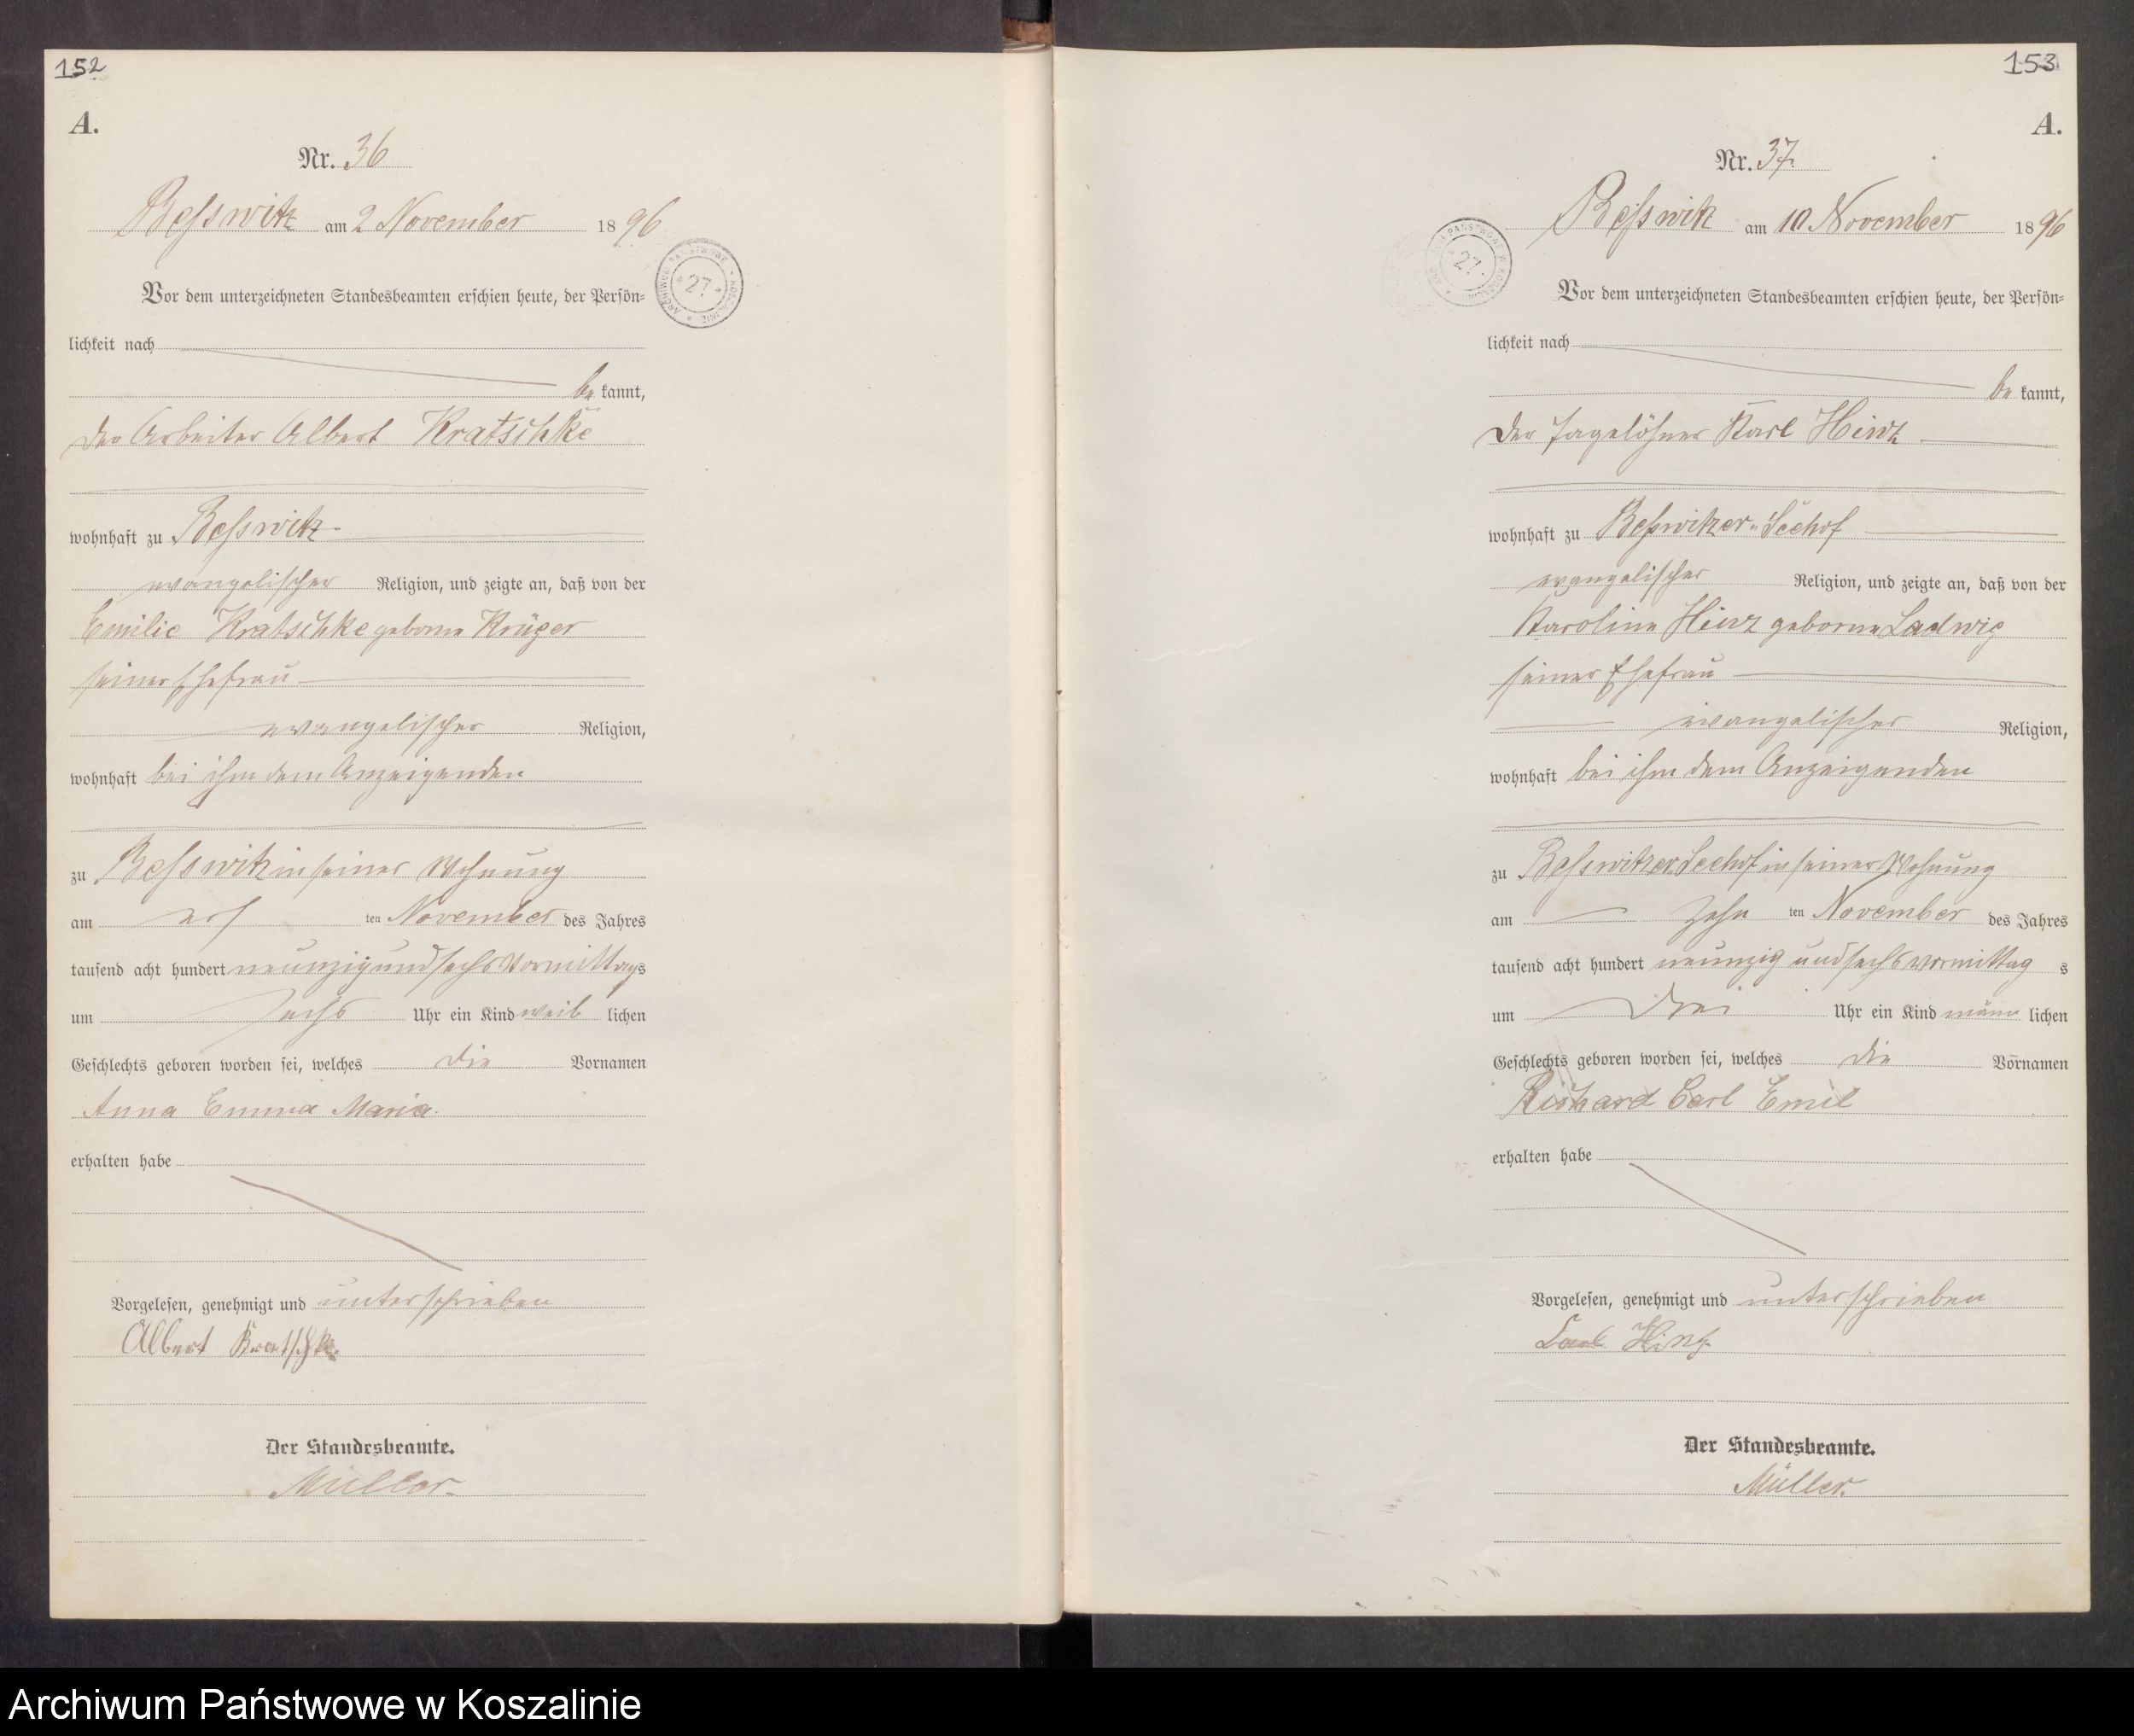 152
A.
Nr. 36
Beßwitz am 2 November 1896
ARCHIWUM PAŃSTWOWE KOSZALINIE 27
Vor dem unterzeichneten Standesbeamten erschien heute, der Persön=
lichkeit nach
bekannt,
der Arbeiter Albert Kratschke
wohnhaft zu Beßwitz
evangelischer Religion, und zeigte an, daß von der
Emilie Kratschke geborne Krüger
seiner Ehefrau
evangelischer Religion,
wohnhaft bei ihm dem Anzeigenden
zu Beßwitz in seiner Wohnung
am ersten November des Jahres
tausend acht hundert neunzig und sechs Vormittags
um sechs Uhr ein Kind weiblichen
Geschlechts geboren worden sei, welches die Vornamen
Anna Emma Maria.
erhalten habe
Vorgelesen, genehmigt und unterschrieben
Albert Kratschke.
Der Standesbeamte.
Müller.
153
A.
Nr. 37.
Beßwitz am 10 November 1896
27
Vor dem unterzeichneten Standesbeamten erschien heute, der Persön=
lichkeit nach
bekannt,
der Tagelöhner Karl Hinz
wohnhaft zu Beßwitzer-Seehof
evangelischer Religion, und zeigte an, daß von der
Karoline Hinz geborne Ladwig
seiner Ehefrau
evangelischer Religion,
wohnhaft bei ihm dem Anzeigenden
zu Beßwitzer Seehof in seiner Wohnung
am zehnten November des Jahres
tausend acht hundert neunzig und sechs vormittags
um drei Uhr ein Kind männlichen
Geschlechts geboren worden sei, welches die Vornamen
Richard Carl Emil
erhalten habe
Vorgelesen, genehmigt und unterschrieben
Carl Hinz.
Der Standesbeamte.
Müller.
Archiwum Państwowe w Koszalinie